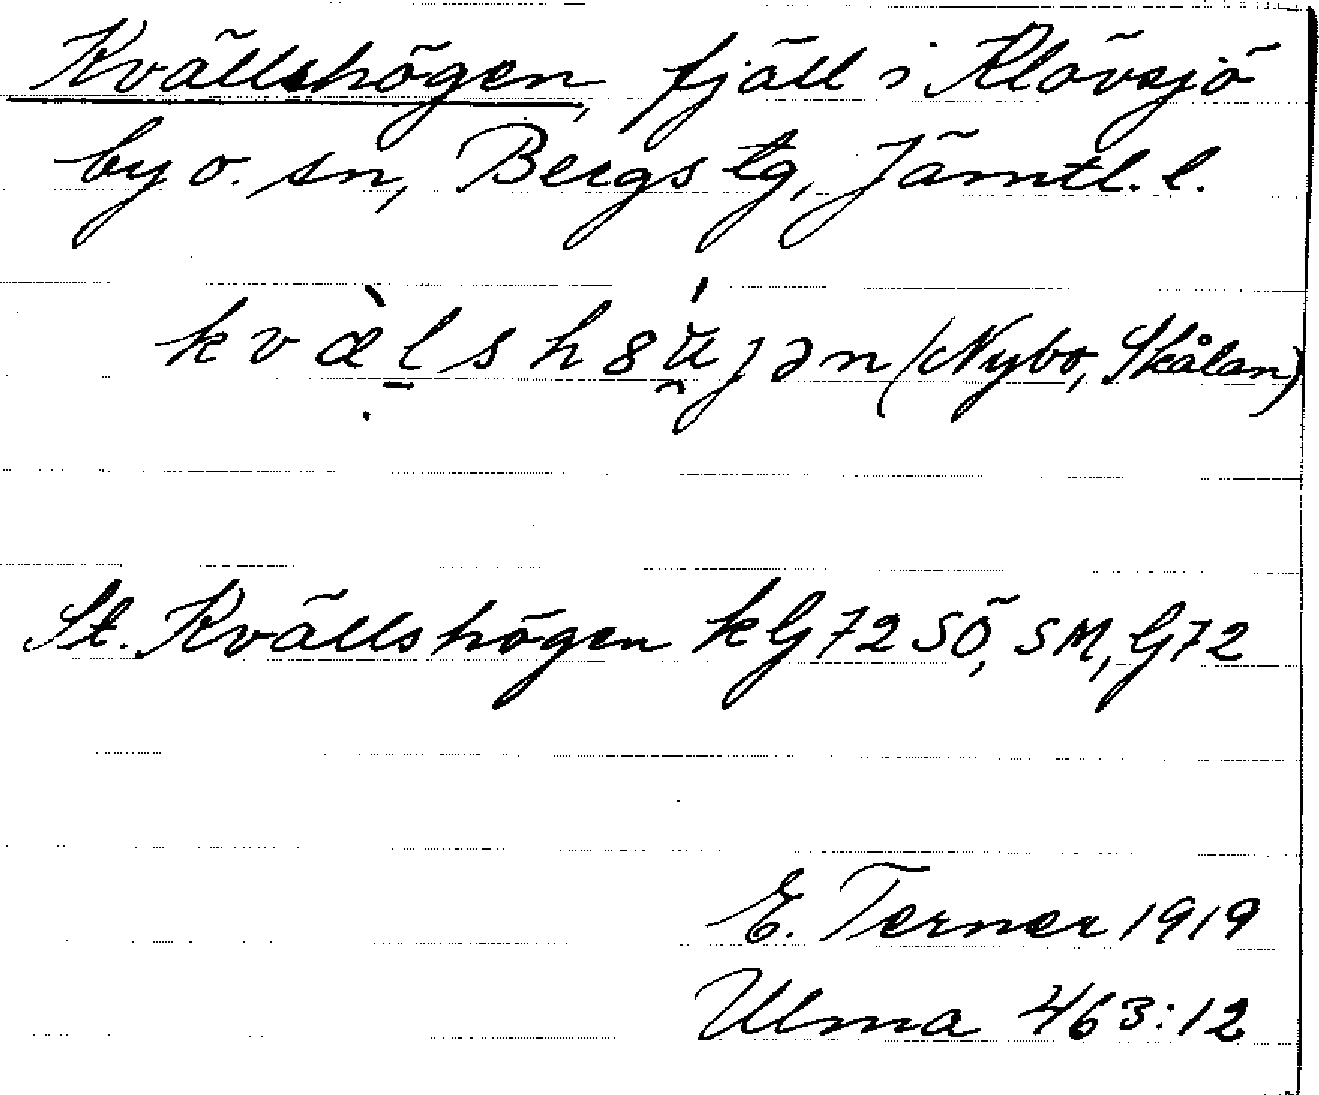 Kvällshögen, fjäll i Klövsjö
by o. sn, Bergs tg, Jämtl. l.
kvæ̀lshöʉ́jən (Nybo, Skålan)
St. Kvällshögen kG72SÖ, SM, G72
E. Terner 1919
Ulma 463:12